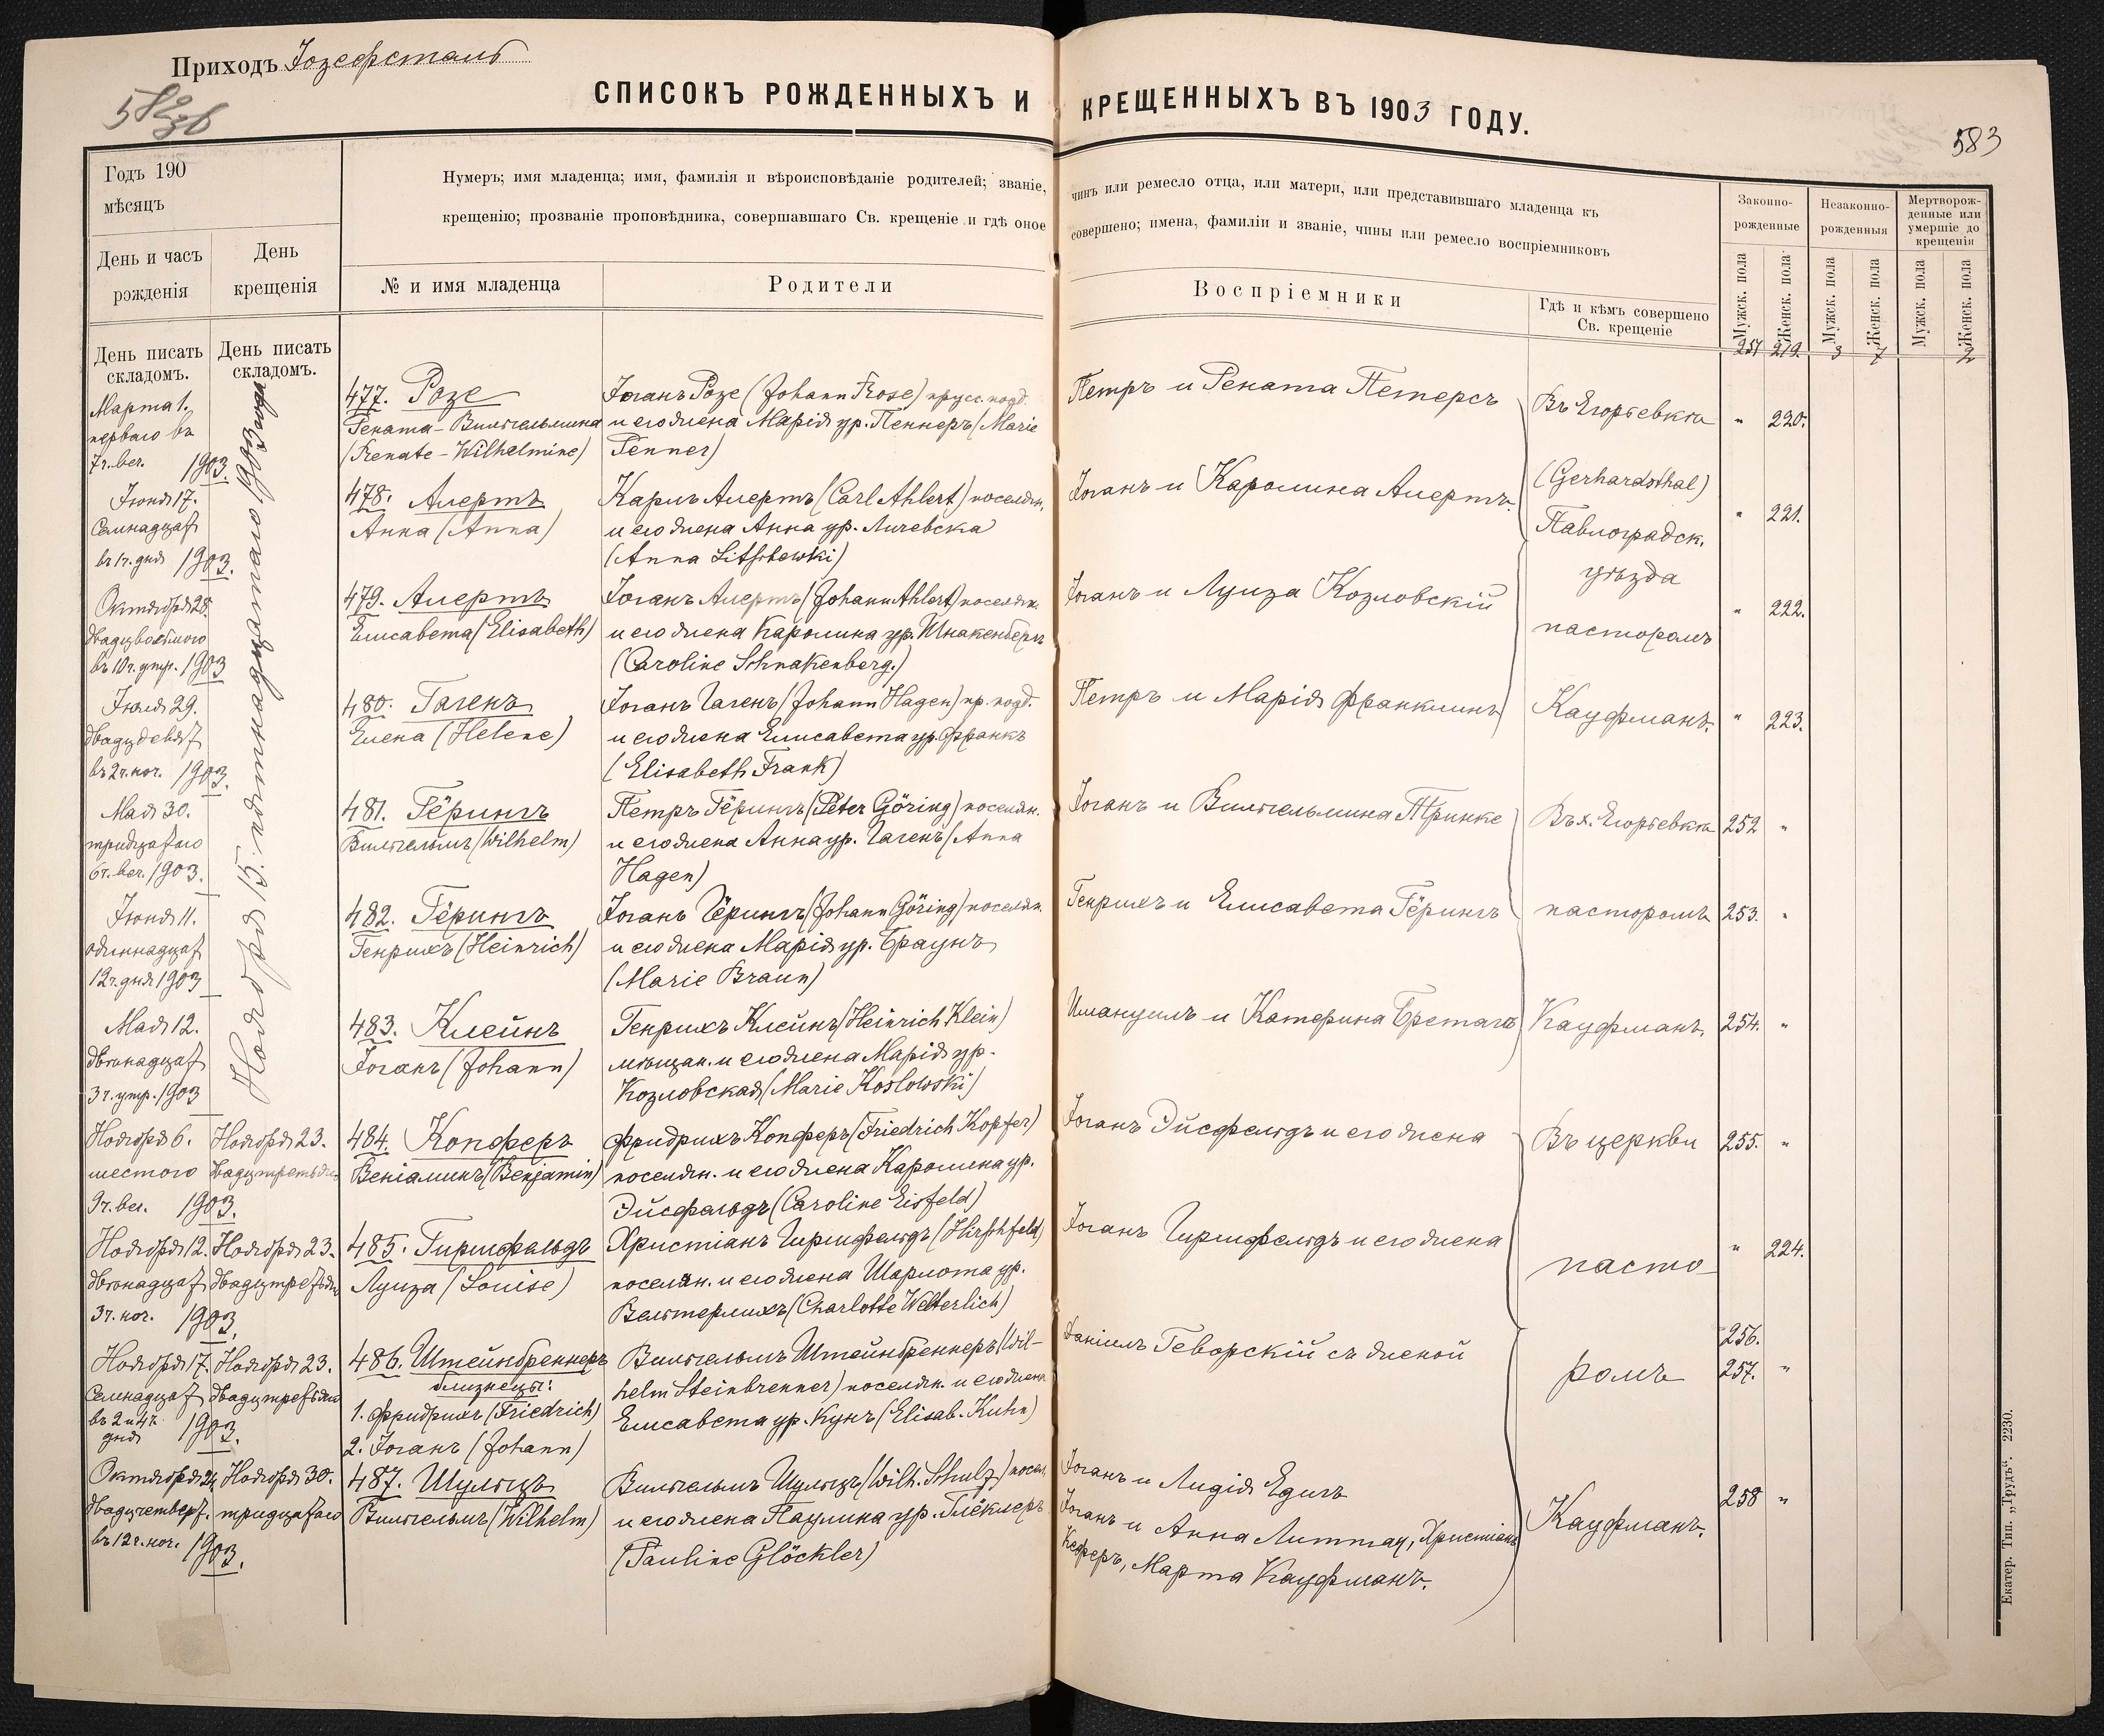 Приходъ Іозефсталь
582
36
СПИСОКЪ РОЖДЕННЫХЪ И КРЕЩЕННЫХЪ ВЪ 1903 ГОДУ.
583
Годъ 190
мѣсяцъ
День и часъ
рожденія
День
крещенія
Нумеръ; имя младенца; имя, фамилія и вѣроисповѣданіе родителей; званіе, чинъ или ремесло отца, или матери, или представившаго младенца къ
крещенію; прозваніе проповѣдника, совершавшаго Св. крещеніе и гдѣ оное совершено; имена, фамиліи и званіе, чины или ремесло воспріемниковъ
№ и имя младенца
Родители
Воспріемники
Гдѣ и кѣмъ совершено
Св. крещеніе
Законно-
рожденные
Незаконно-
рожденныя
Мертворож-
денные или
умершіе до
крещенія
Мужск. пола
Женск. пола
Мужск. пола
Женск. пола
Мужск. пола
Женск. пола
День писать
складомъ.
День писать
складомъ.
251 219. 3 7 2
Марта 1.
перваго въ
7ч. веч. 1903.
Ноября 15. пятнадцатаго 1903 года
477. Розе
Рената-Вильгельмина
(Renate-Wilhelmine)
Іоганъ Розе (Johann Rose) прусс. подд.
и его жена Марія ур. Пеннеръ (Marie
Penner)
Петръ и Рената Петерсъ
Въ Егорьевкѣ
" 220.
Іюня 17.
семнадцат
въ 1ч. дня 1903.
478. Алертъ
Анна (Anna)
Карлъ Алертъ (Carl Ahlert) поселян.
и его жена Анна ур. Личевска
(Anna Litschewski)
Іоганъ и Каролина Алертъ.
(Gerhardsthal)
Павлоградск.
" 221.
Октября 28.
двадцвосьмого
въ 10ч. утр. 1903
479. Алертъ
Елисавета (Elisabeth)
Іоганъ Алертъ (Johann Ahlert) поселян.
и его жена Каролина ур. Шнакенбергъ
(Caroline Schnakenberg.)
Іоганъ и Луиза Козловскій
уѣзда
пасторомъ
" 222.
Іюля 29.
двадцдевят
въ 2ч. ноч. 1903.
480. Гагенъ
Елена (Helene)
Іоганъ Гагенъ (Johann Hagen) пр. подд.
и его жена Елисавета ур. Франкъ
(Elisabeth Frank)
Петръ и Марія Франклинъ
Кауфманъ.
" 223.
Мая 30.
тридцатаго
6ч. веч. 1903.
481. Гёрингъ
Вильгельмъ (Wilhelm)
Петръ Гёрингъ (Peter Göring) поселян.
и его жена Анна ур. Гагенъ (Anna
Hagen)
Іоганъ и Вильгельмина Тринке
Въ х. Егорьевкѣ
252 "
Іюня 11.
одиннадцат
12ч. дня 1903
482. Гёрингъ
Генрихъ (Heinrich)
Іоганъ Гёрингъ (Johann Göring) поселян.
и его жена Марія ур. Браунъ
(Marie Braun)
Генрихъ и Елисавета Гёрингъ
пасторомъ
253. "
Мая 12.
двѣнадцат
3ч. утр. 1903
483. Клейнъ
Іоганъ (Johann)
Генрихъ Клейнъ (Heinrich Klein)
мѣщан. и его жена Марія ур.
Козловская (Marie Koslowski)
Имануилъ и Катерина
Кауфманъ.
254. "
Ноября 6.
шестого
9ч. веч. 1903.
Ноября 23.
двадцтретьяго
484. Копферъ
Веніаминъ (Benjamin)
Фридрихъ Копферъ (Friedrich Kopfer)
поселян. и его жена Каролина ур.
Эйсфельдъ (Caroline Eisfeld)
Іоганъ Эйсфельдъ и его жена
Въ церкви
255. "
Ноября 12.
двѣнадцат
3ч. ноч. 1903.
Ноября 23.
двадцтретьяго
485. Гиршфельдъ
Луиза (Louise)
Христіанъ Гиршфельдъ (Hirschfeld)
поселян. и его жена Шарлота ур.
Вельтерлихъ (Charlotte Welterlich)
Іоганъ Гиршфельдъ и его жена
пасто-
" 224.
Ноября 17.
семнадцат
въ 2 и 4ч.
дня 1903.
Ноября 23.
двадцтретьяго
486. Штейнбреннеръ
близнецы:
1. Фридрихъ (Friedrich)
2. Іоганъ (Johann)
Вильгельмъ Штейнбреннеръ (Wil-
helm Steinbrenner) поселян. и его жена
Елисавета ур. Кунъ (Elisab. Kuhn)
Даніилъ Геворскій съ женой
ромъ
256.
257. "
Октября 24.
двадцчетверт.
въ 12ч. ноч. 1903.
Ноября 30.
тридцатаго
487. Шульцъ
Вильгельмъ (Wilhelm)
Вильгельмъ Шульцъ (Wilh. Schulz) посел.
и его жена Паулина ур. Глёклеръ
(Pauline Glöckler)
Іоганъ и Лидія Едигъ
Іоганъ и Анна Литтау, Христіанъ
Кеферъ, Марта Кауфманъ.
Кауфманъ.
258 "
Екатер. Тип. „Трудъ“. 2230.